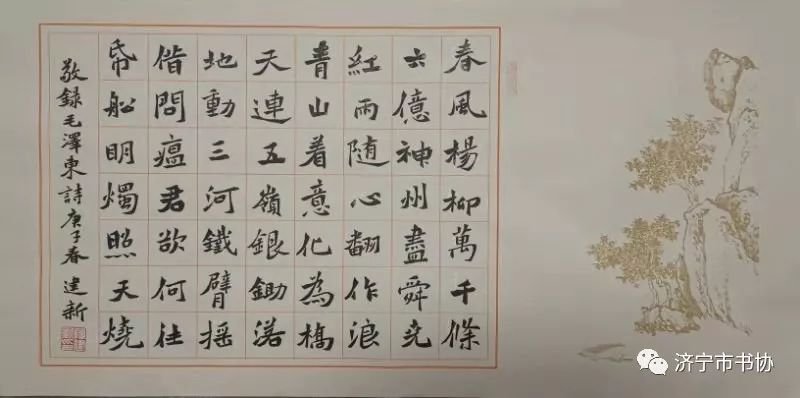 春風楊柳萬千條
六億神州盡舜尭
紅雨随心翻作浪
青山着意化為橋
天連五嶺銀鋤落
地動三河鐵臂揺
偕問瘟君欲何往
帋船明燭照天燒
敬録毛澤東詩庚子春建新
济宁市书协